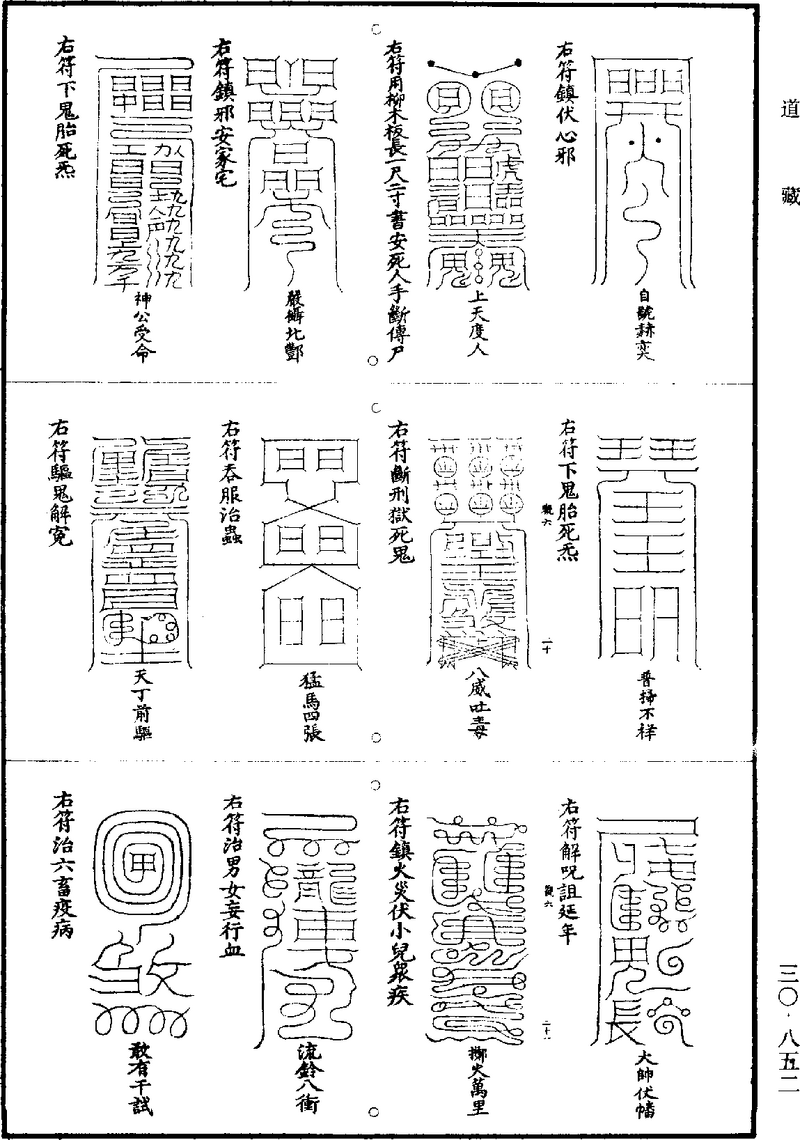 道藏
自號赫奕
右符鎮伏心邪
上天度人
右符用柳木板長一尺二寸書安死人手斷傳尸
嚴攝北酆
右符鎮邪安家宅
神公受命
右符下鬼胎死炁
普掃不祥
右符下鬼胎死炁
八威吐毒
右符斷刑獄死鬼
猛馬四張
右符吞服治蟲
天丁前驅
右符驅鬼解冤
大帥伏幡
右符解呪詛延年
擲火萬里
右符鎮火災伏小兒眾疾
流鈴八衝
右符治男女妄行血
敢有干試
右符治六畜疫病
三〇·八五二